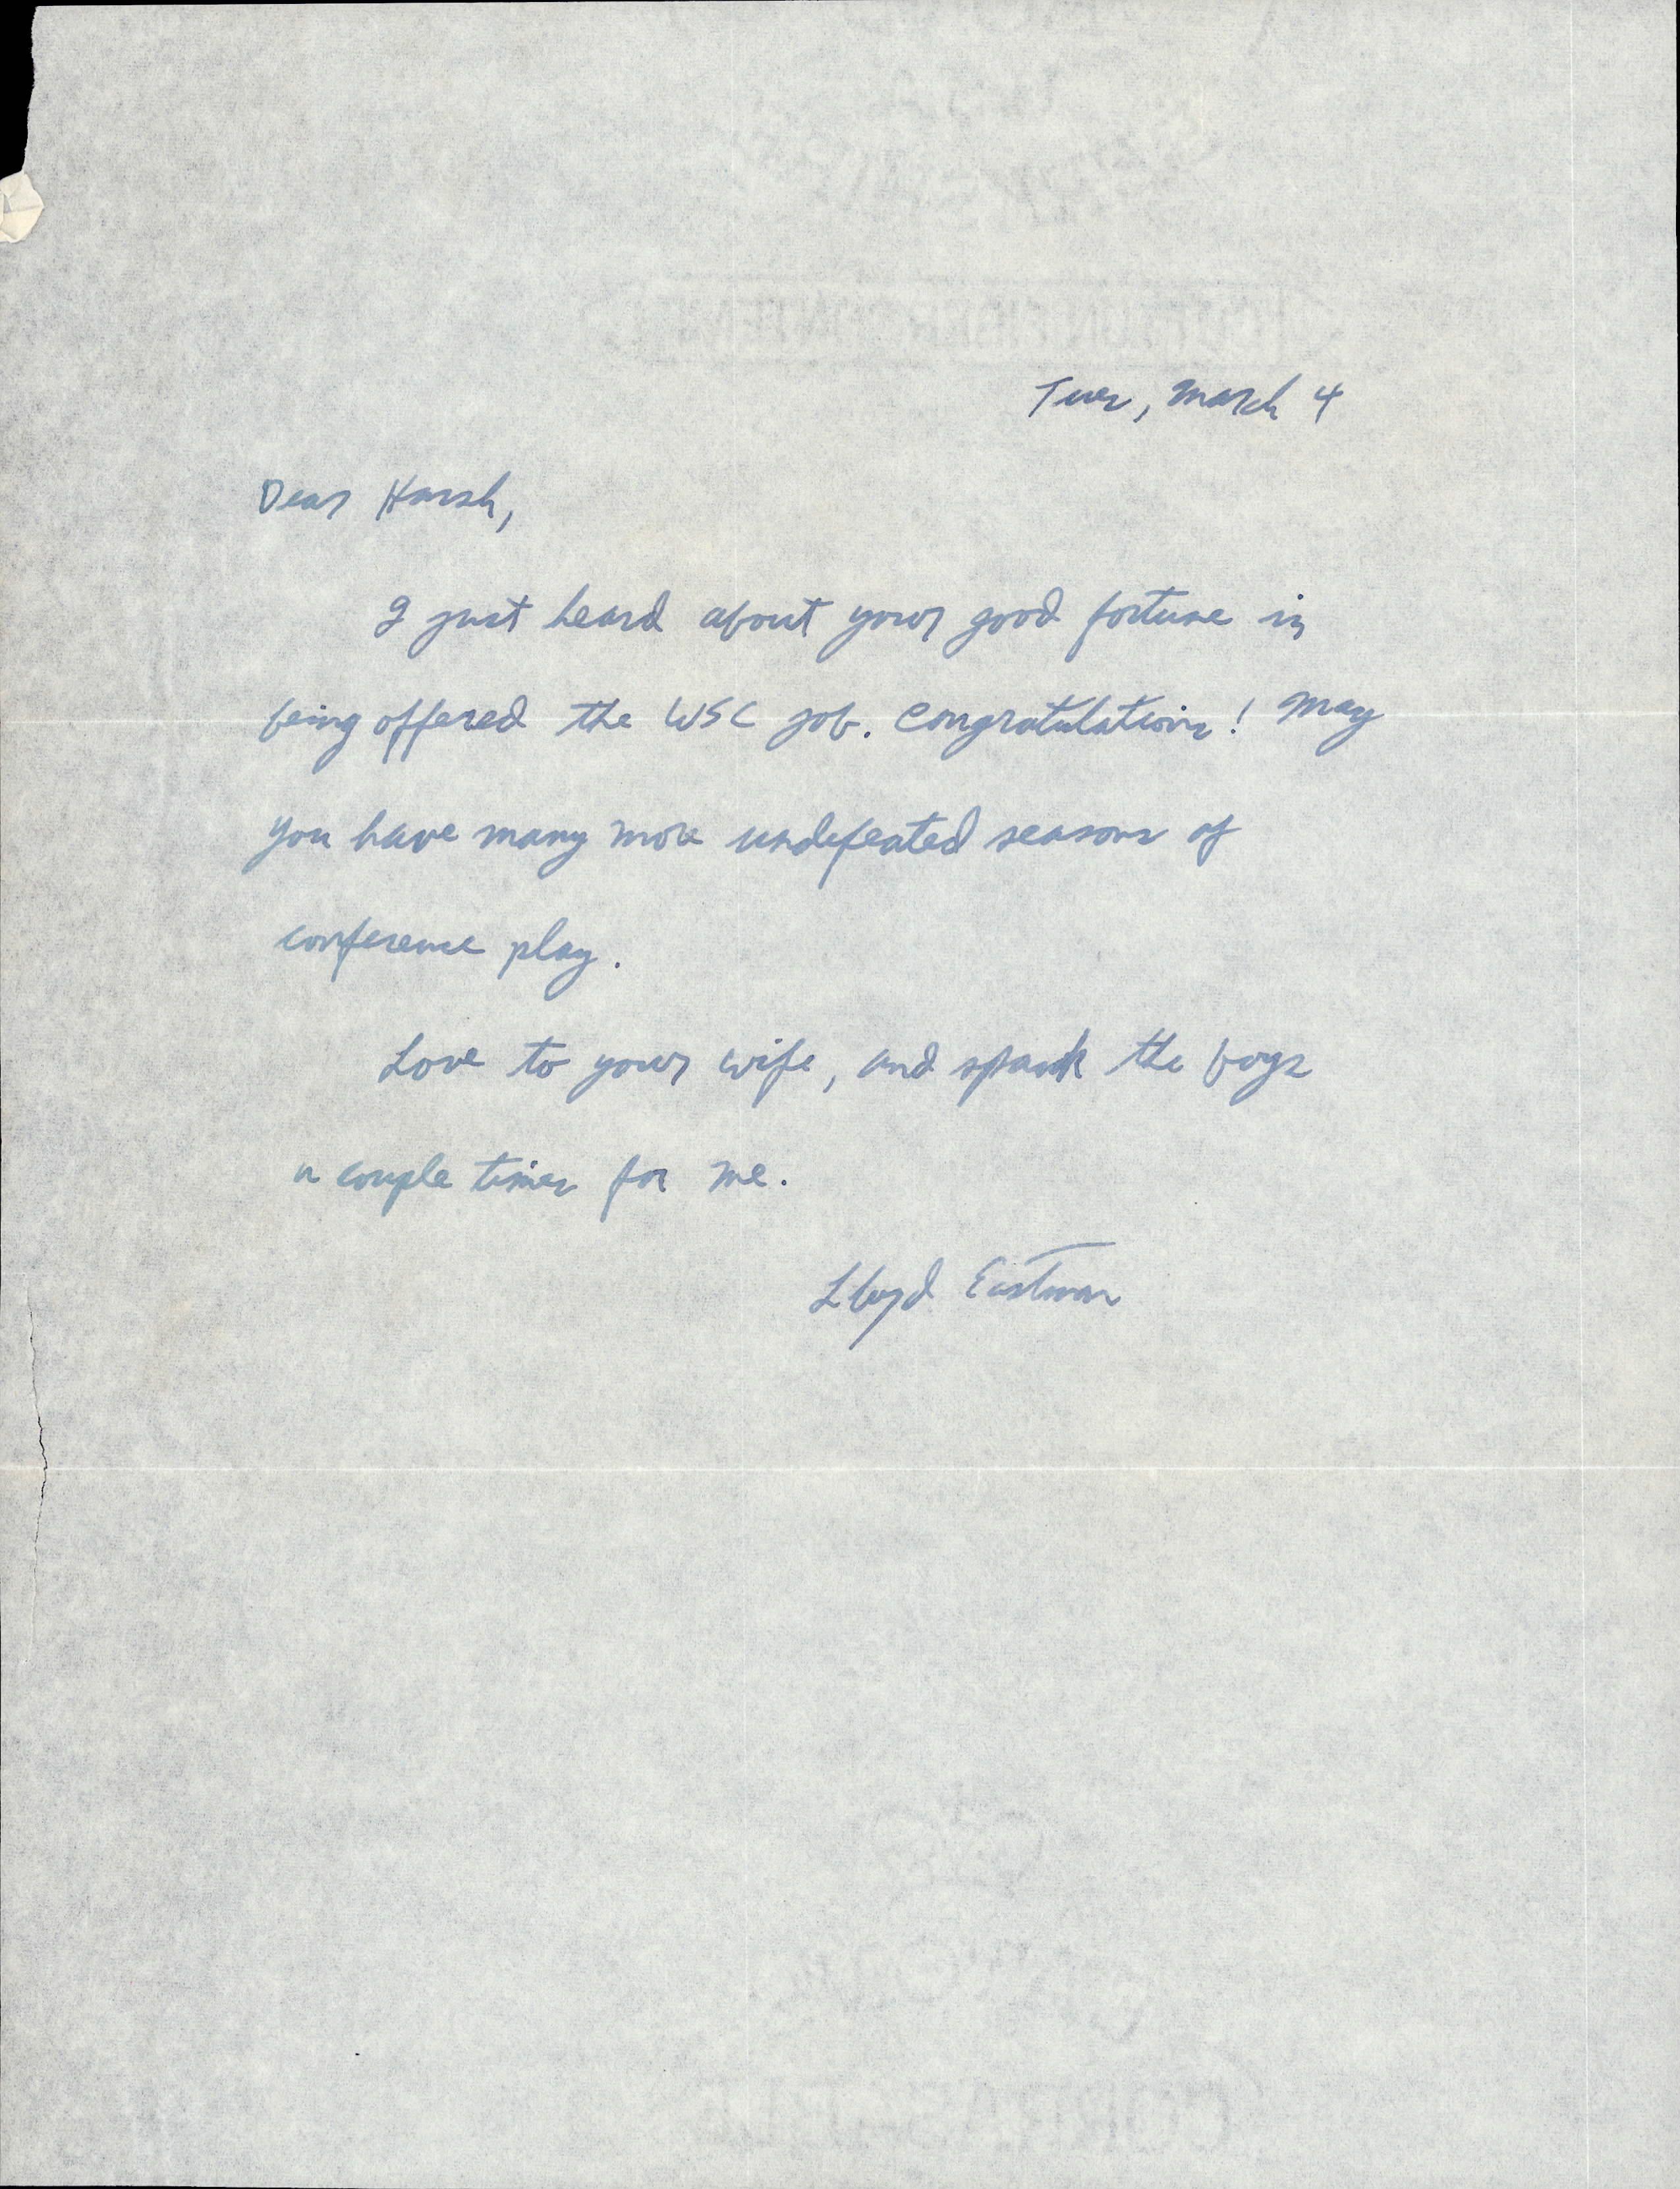 Tues, March 4
Dear Harsh,
I just heard about your good fortune in
being offered the WSC job. Congratulations! May
you have many more undefeated seasons of
conference play.
Love to your wife, and spank the boys
a couple times for me.
Lloyd Eastman